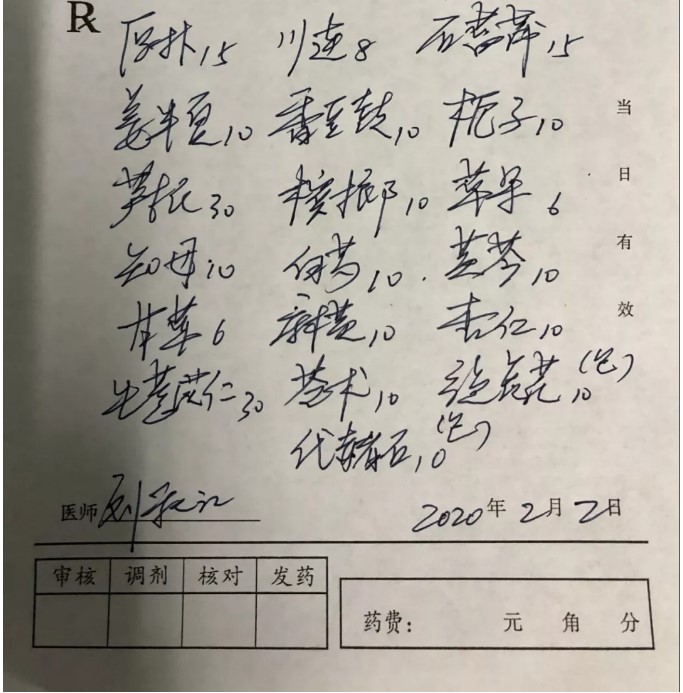 Rx
厚朴15 川连8 石菖蒲15
姜半夏10 香豆豉10 栀子10
芦根30 槟榔10 草果6
知母10 白芍10 黄芩10
甘草6 麻黄10 杏仁10
生薏苡仁30 苍术10 旋覆花10(包)
代赭石10(包)
当日有效
医师 刘
2020年2月2日
审核 调剂 核对 发药
药费: 元 角 分